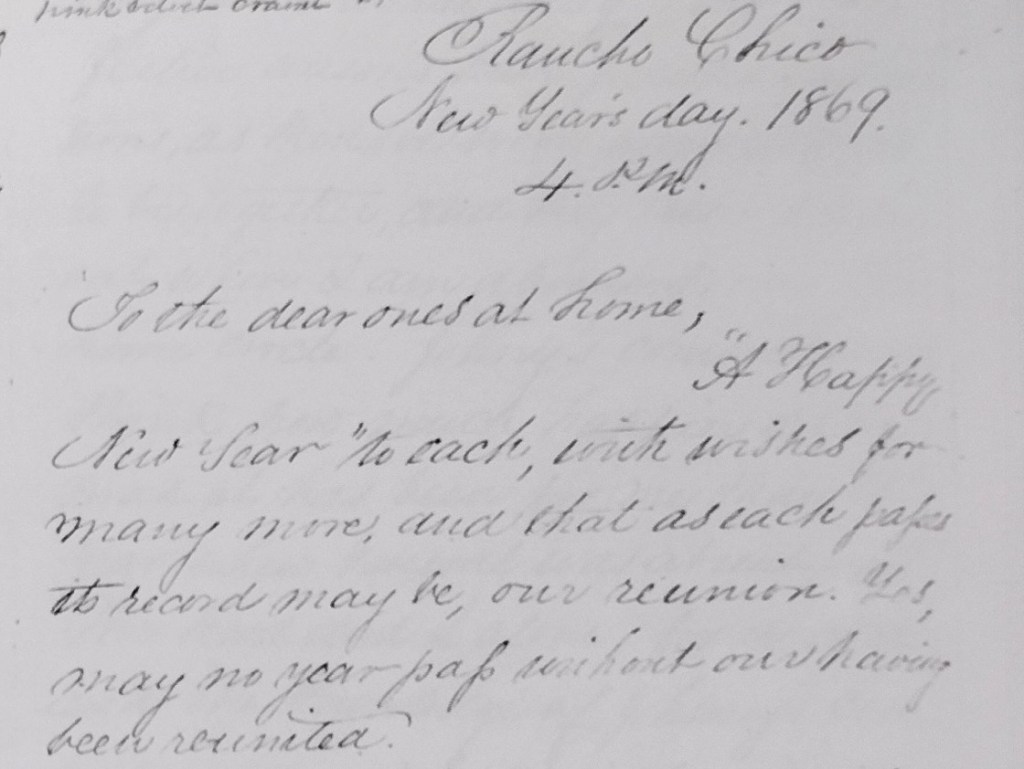 pink velvet
Rancho Chico
New Year's day. 1869.
4. P.M.
To the dear ones at home,
"A Happy
New Year" to each, with wishes for
many more, and that as each paſses
its record may be, our reunion. Yes,
may no year paſs without our having
been reunited.